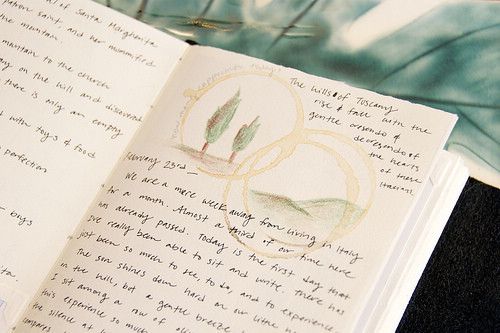 of Santa Margherita
patron saint and her mummified
the mountain.
mountain to the church
on the hill and discovered
there is only an empty
with toys & food
perfection
boys
The hills of Tuscany
rise & fall with the
gentle cresendo &
decresendo of
the hearts
of these
Italians.
February 23rd —
We are a mere week away from living in Italy
for a month. Almost a third of our time here
has already passed. Today is the first day that
I've really been able to sit and write. There has
just been so much to see, to do, and to experience
The sun shines down hard on our little
in the hill, but a gentle breeze
I sit among a row of
this experience so much
the silence at
compares